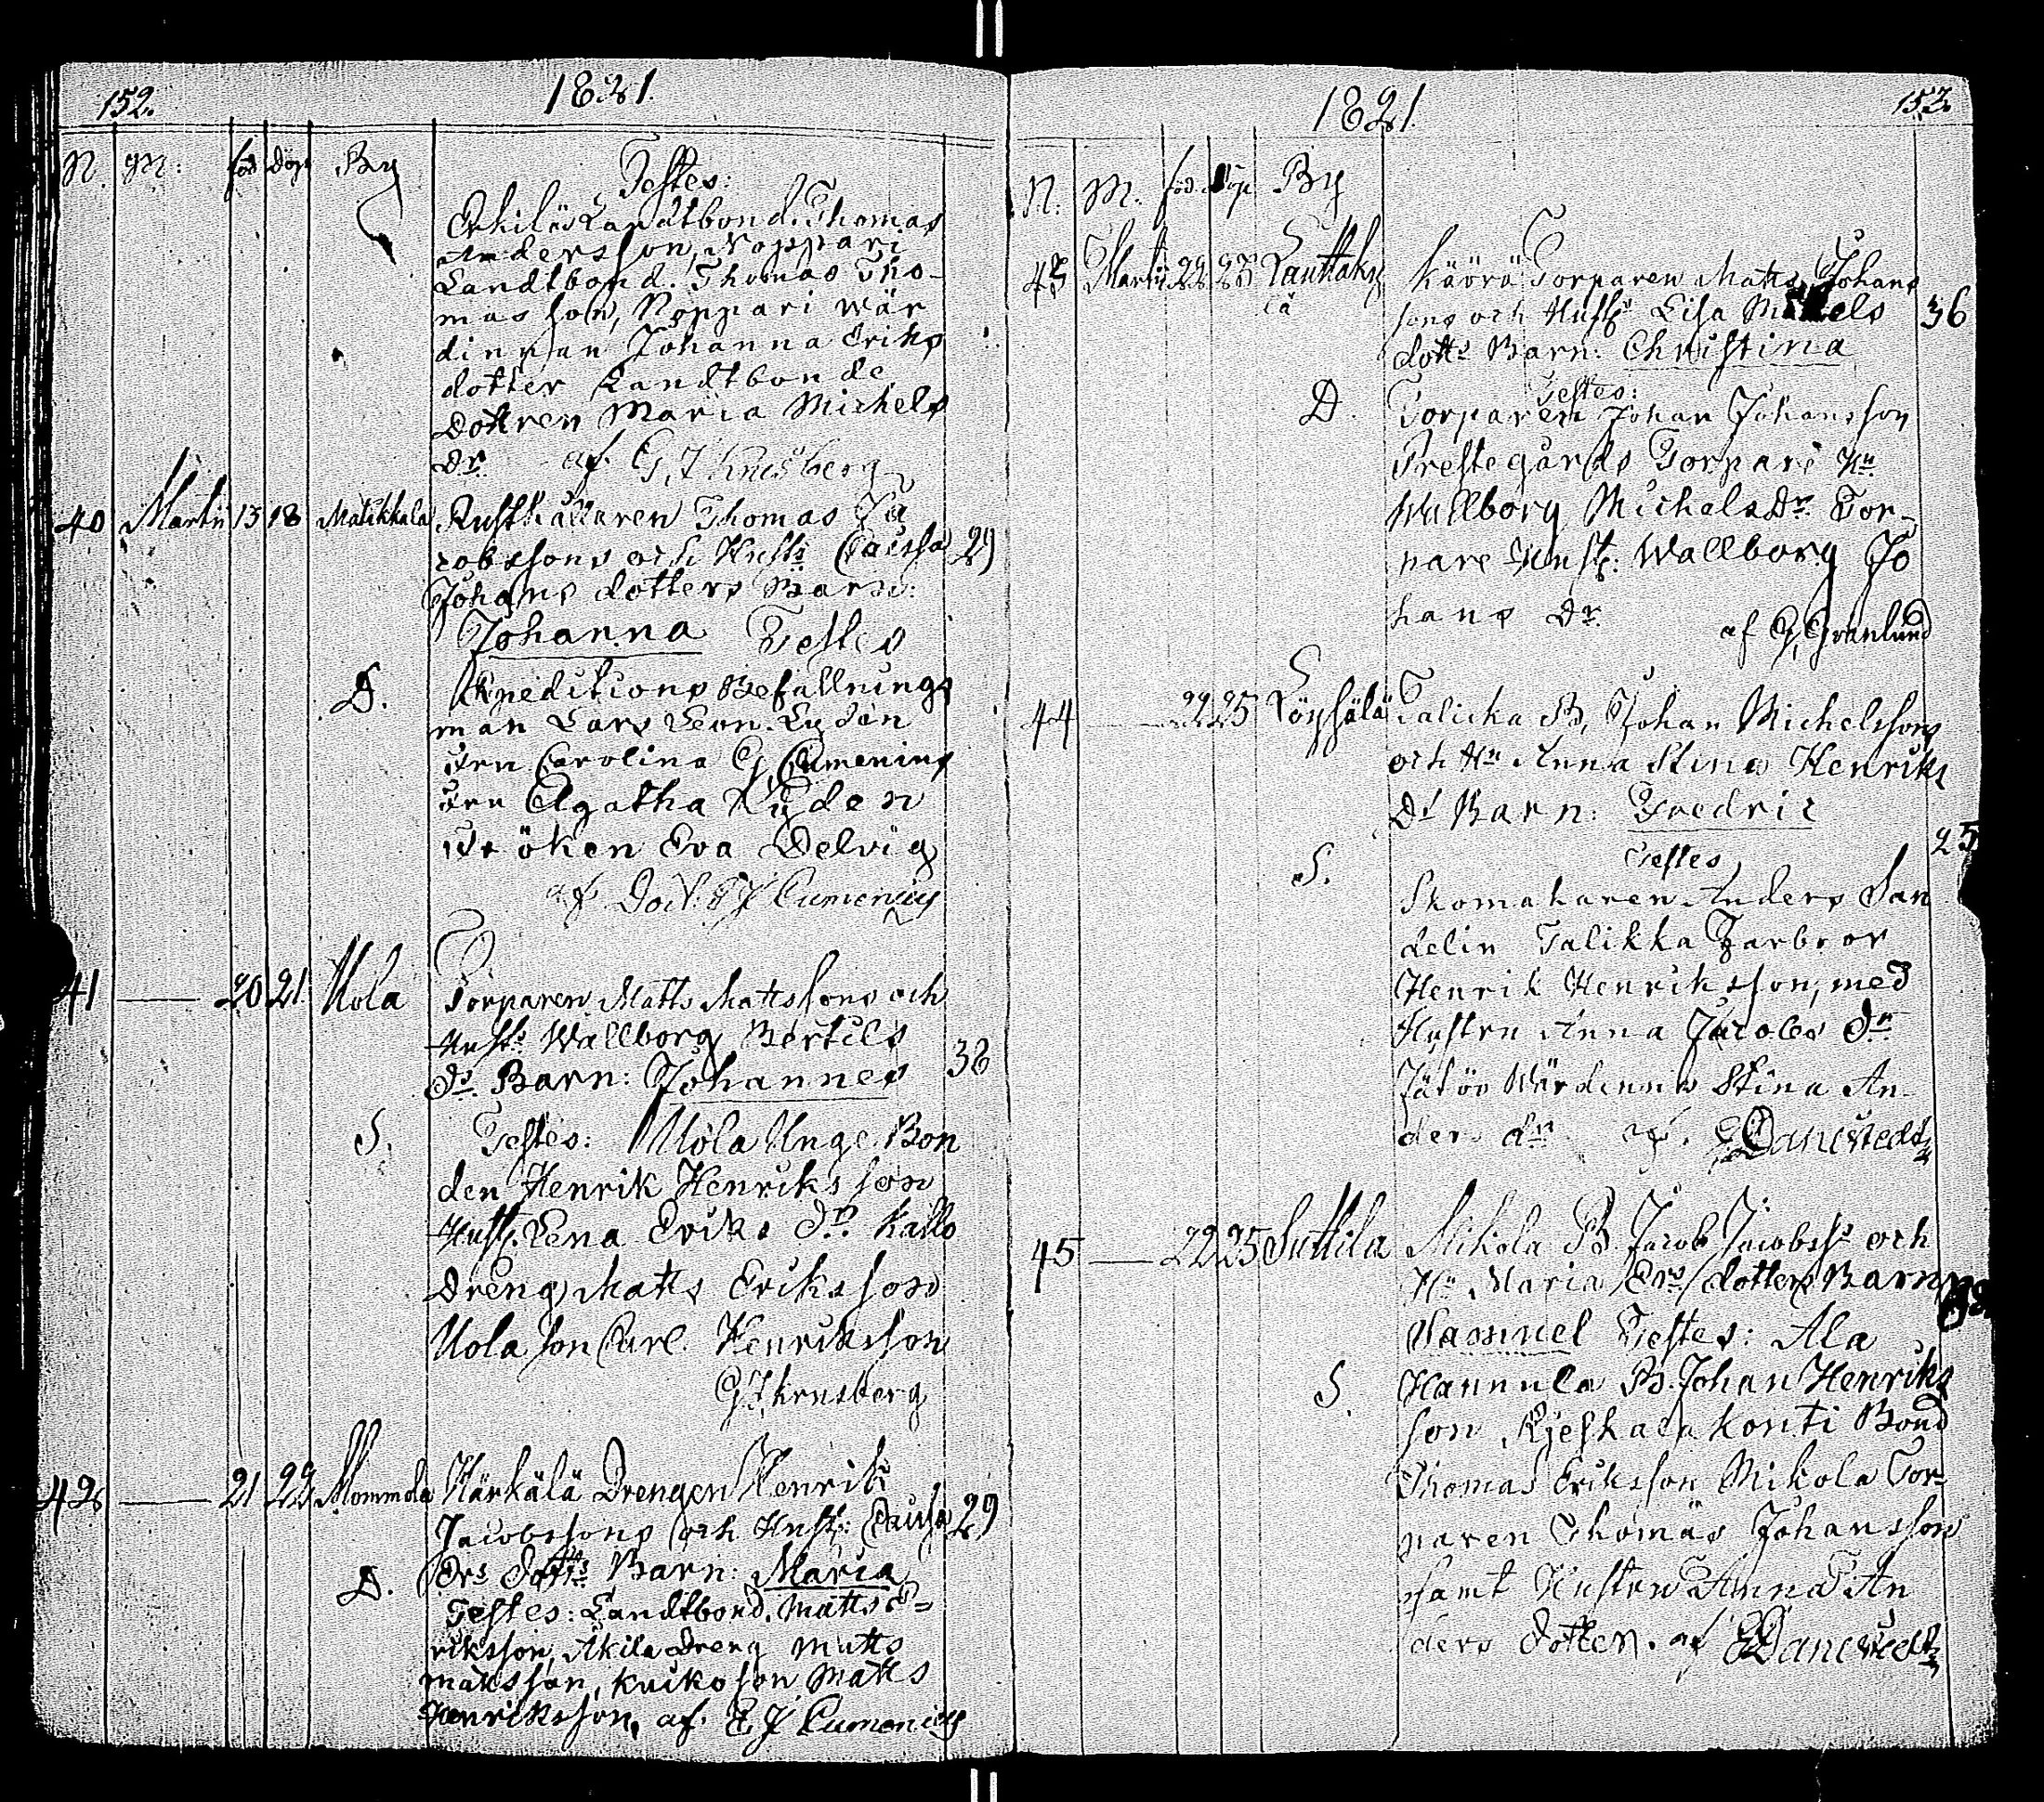 152. 1821.
N. M: föd Döp By
Testes:
Erkilä Landtbond. Thomas
Andersson, Noppari
Landtbond. Thomas Tho-
mas son, Noppari wär
dinnan Johanna Eriks
dotter Landtbonde
Dottren Maria Michels
Dr. af G, J
40 Martii 13 18 Matikkala Rusthållaren Thomas Ja
cobssons och Hustr Caissa 29
Johans dotters Barn:
Johanna Testes
D. Expeditions Befallnings
man Lars Leon. Lyden
Fru Carolina G, Cumenius
Fru Agatha Lyden
Fröken Eva Delvig
af Doct. E J Cumenius
41 — 20 21 Uola Torparen Matts Mattssons och
Hustr Wallborg Bertils
Dr Barn: Johannes 38
S. Testes: Uola Unge Bon
den Henrik Henriksson
Hust. Lena Eriks Dr. Kallo
Dreng Matts Eriksson
Uola son Carl Henriksson
G J
42 — 21 22 Mommola Härkälä Drengen Henrik
Jacobssons och Hust: Caisa 29
Ers Dotts Barn: Maria
D.
Testes: Landtbond. Matts E=
riksson, Akila Dreng Matts
Mattsson, Kuiko son Matts
Henriksson, af. E J Cumenius
1821. 152.
N. M. föd. Döp By
43 Martii 22 23 Lauttaky
lä Käörä Torparen Matts Johans
sons och Hust. Lisa Mickels 36
dotts Barn: Christina
Testes:
D. Torparen Johan Johansson
Prestegårds Torpare Hu
Wallborg Michels Dr. Tor-
pare Hust: Wallborg Jo
hans Dr. af G, Granlund
44 — 22 25 Löysälä Talicka B, Johan Michelssons
och Hu Anna Stina Henriks
Dr Barn: Fredric
25
Testes
S. Skomakaren Anders San
delin Talikka Farbror
Henrik Henriksson, med
Hustru Anna Jacobs Dr
Wärdinnis Stina An-
ders dr af.
45 — 22 25 Suttila Mikola B. Jacob Jacobss. och
Hu Maria Ers dotters Barn
Samuel Testes: Ala
S. Hannula B. Johan Henriks
son, Konti Bond
Thomas Eriksson Mikola Tor-
paren Thomas Johansson
samt Hustru Anna An
ders dotter. af